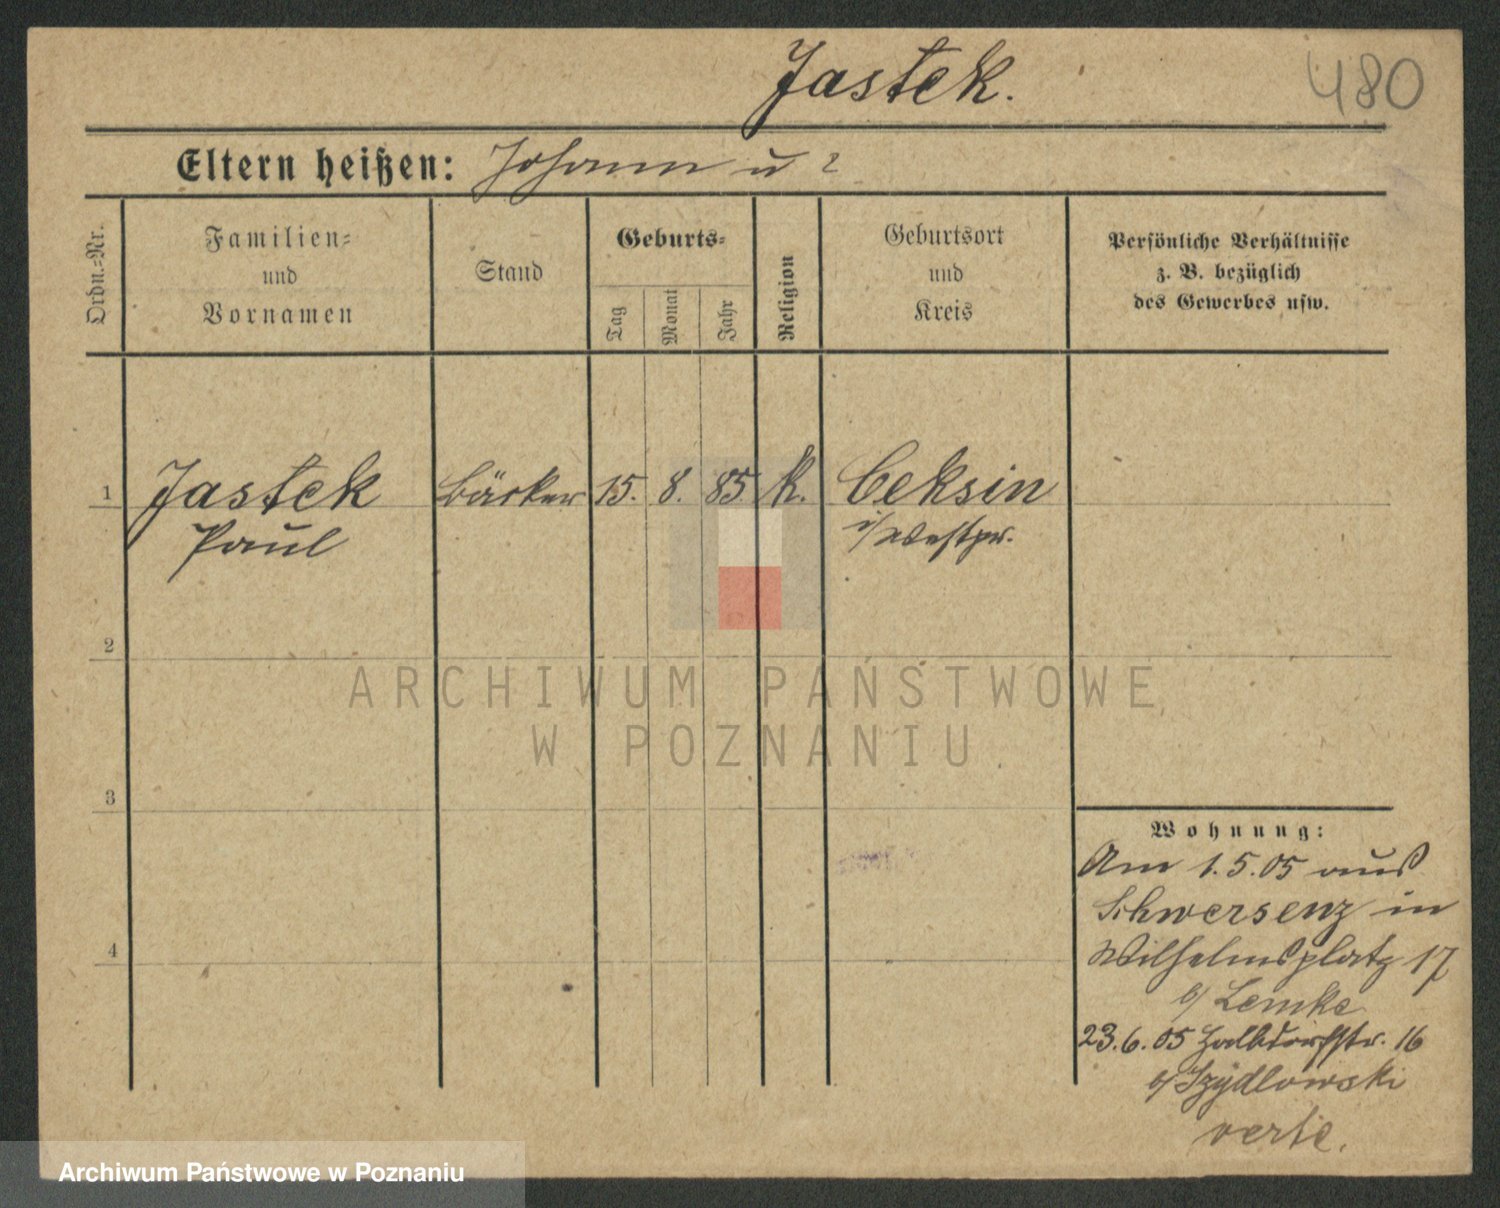 Jastek.
480
Eltern heißen: Johann u ?
Ordn.-Nr.
Familien-
und
Vornamen
Stand
Geburts-
Tag
Monat
Jahr
Religion
Geburtsort
und
Kreis
Persönliche Verhältnisse
z. B. bezüglich
des Gewerbes usw.
1 Jastek Bäcker 15. 8. 85 k. Ceksin
Paul i/Westpr.
2
ARCHIWUM PAŃSTWOWE
W POZNANIU
3
Wohnung:
Am 1.5.05 aus
Schwersenz in
4
Wilhelmsplatz 17
b/ Lemke
23.6.05 Halbdorfstr. 16
b/ Szydlowski
verte.
Archiwum Państwowe w Poznaniu